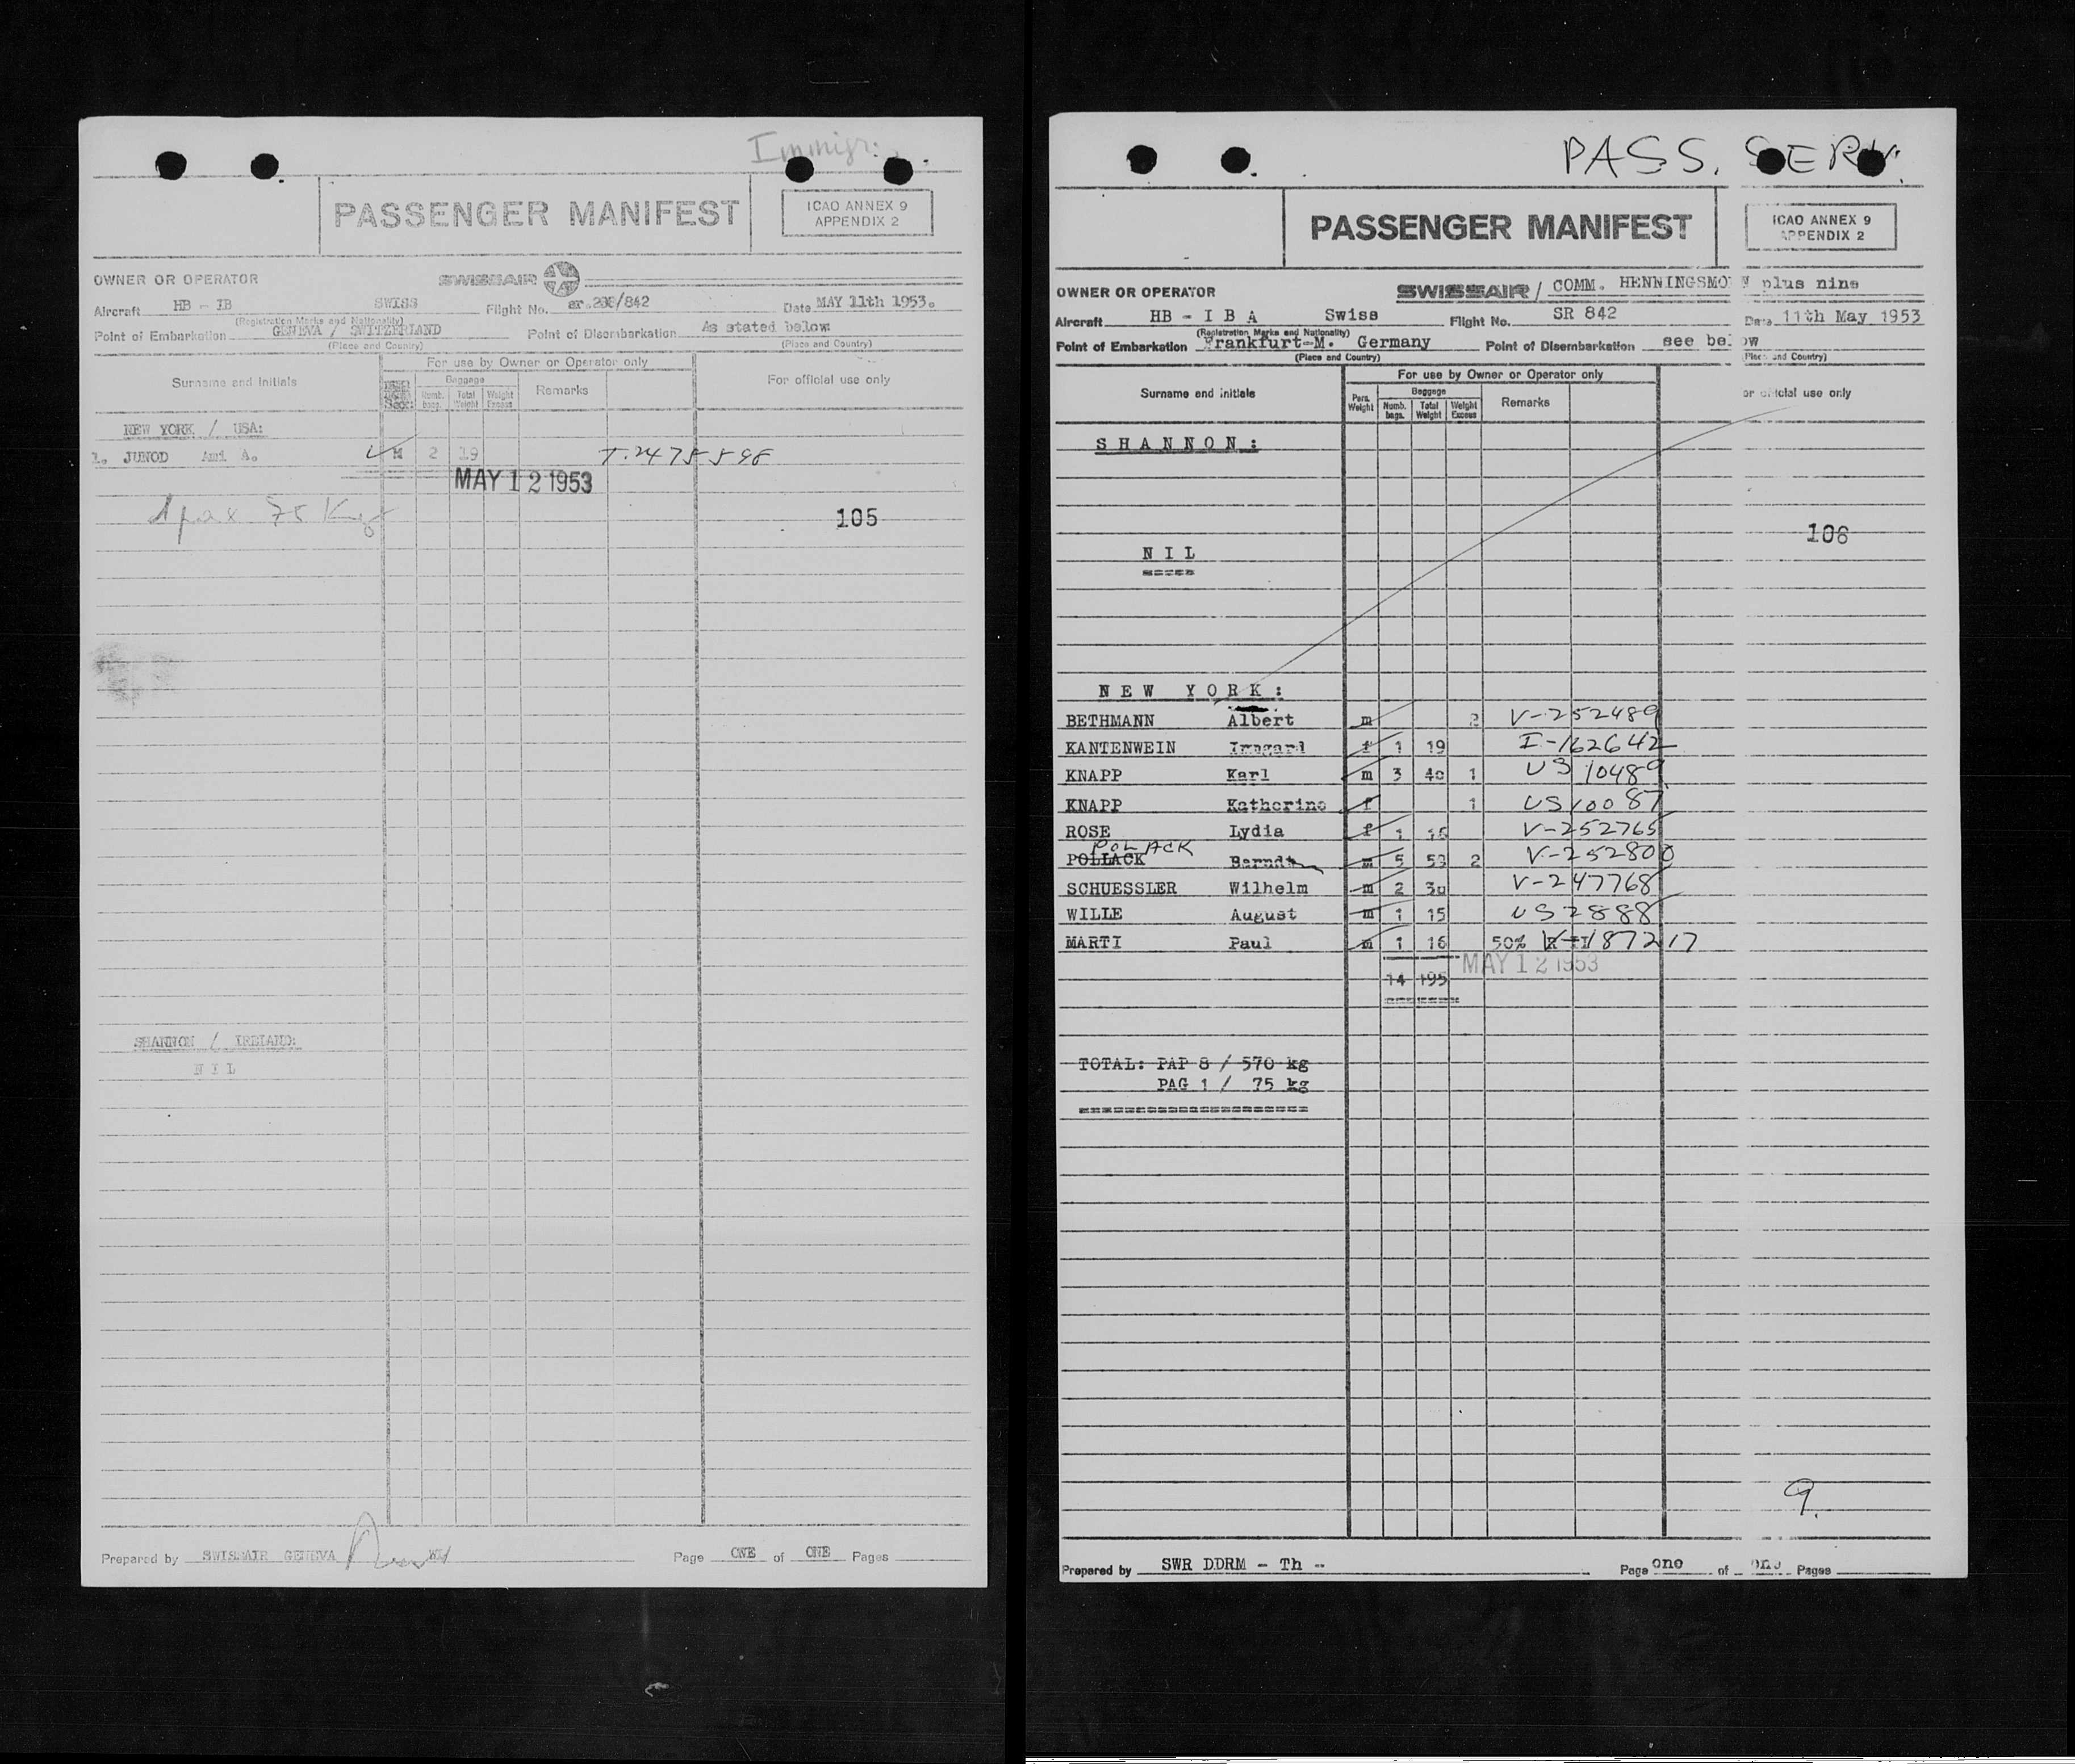 Immigr.
PASSENGER MANIFEST
ICAO ANNEX 9
APPENDIX 2
OWNER OR OPERATOR SWISSAIR
Aircraft HB - IB SWISS Flight No. sr.238/842 Date MAY 11th 1953.
(Registration Marks and Nationality)
Point of Embarkation GENEVA / SWITZERLAND Point of Disembarkation As stated below
(Place and Country) (Place and Country)
For use by Owner or Operator only
Surname and Initials Baggage Remarks For official use only
Numb. bags. Total Weight Weight Excess
NEW YORK / USA:
1. JUNOD Ami A. M 2 19 T.2475598
MAY 12 1953
1 pax 75 Kg
105
SHANNON / IRELAND:
N I L
Prepared by SWISSAIR GENEVA Page ONE of ONE Pages
PASS. SERV.
PASSENGER MANIFEST
ICAO ANNEX 9
APPENDIX 2
OWNER OR OPERATOR SWISSAIR / COMM. HENNINGSMO W plus nine
Aircraft HB - I B A Swiss Flight No. SR 842 Date 11th May 1953
(Registration Marks and Nationality)
Point of Embarkation Frankfurt-M. Germany Point of Disembarkation see below
(Place and Country) (Place and Country)
For use by Owner or Operator only
Surname and Initials Pers. Weight Baggage Remarks or official use only
Numb. bags. Total Weight Weight Excess
S H A N N O N :
106
N I L
N E W Y O R K :
BETHMANN Albert m 2 V-252489
KANTENWEIN Irmgard f 1 19 I-162642
KNAPP Karl m 3 40 1 US 10489
KNAPP Katherine f 1 US 10087
ROSE Lydia f 1 16 V-252765
POLACK
POLLACK Berndt m 5 59 2 V-252800
SCHUESSLER Wilhelm m 2 30 V-247768
WILLE August m 1 15 US 2888
MARTI Paul m 1 16 50% V-187217
MAY 12 1953
14 195
TOTAL: PAP 8 / 570 kg
PAG 1 / 75 kg
9.
Prepared by SWR DDRM - Th - Page one of one Pages